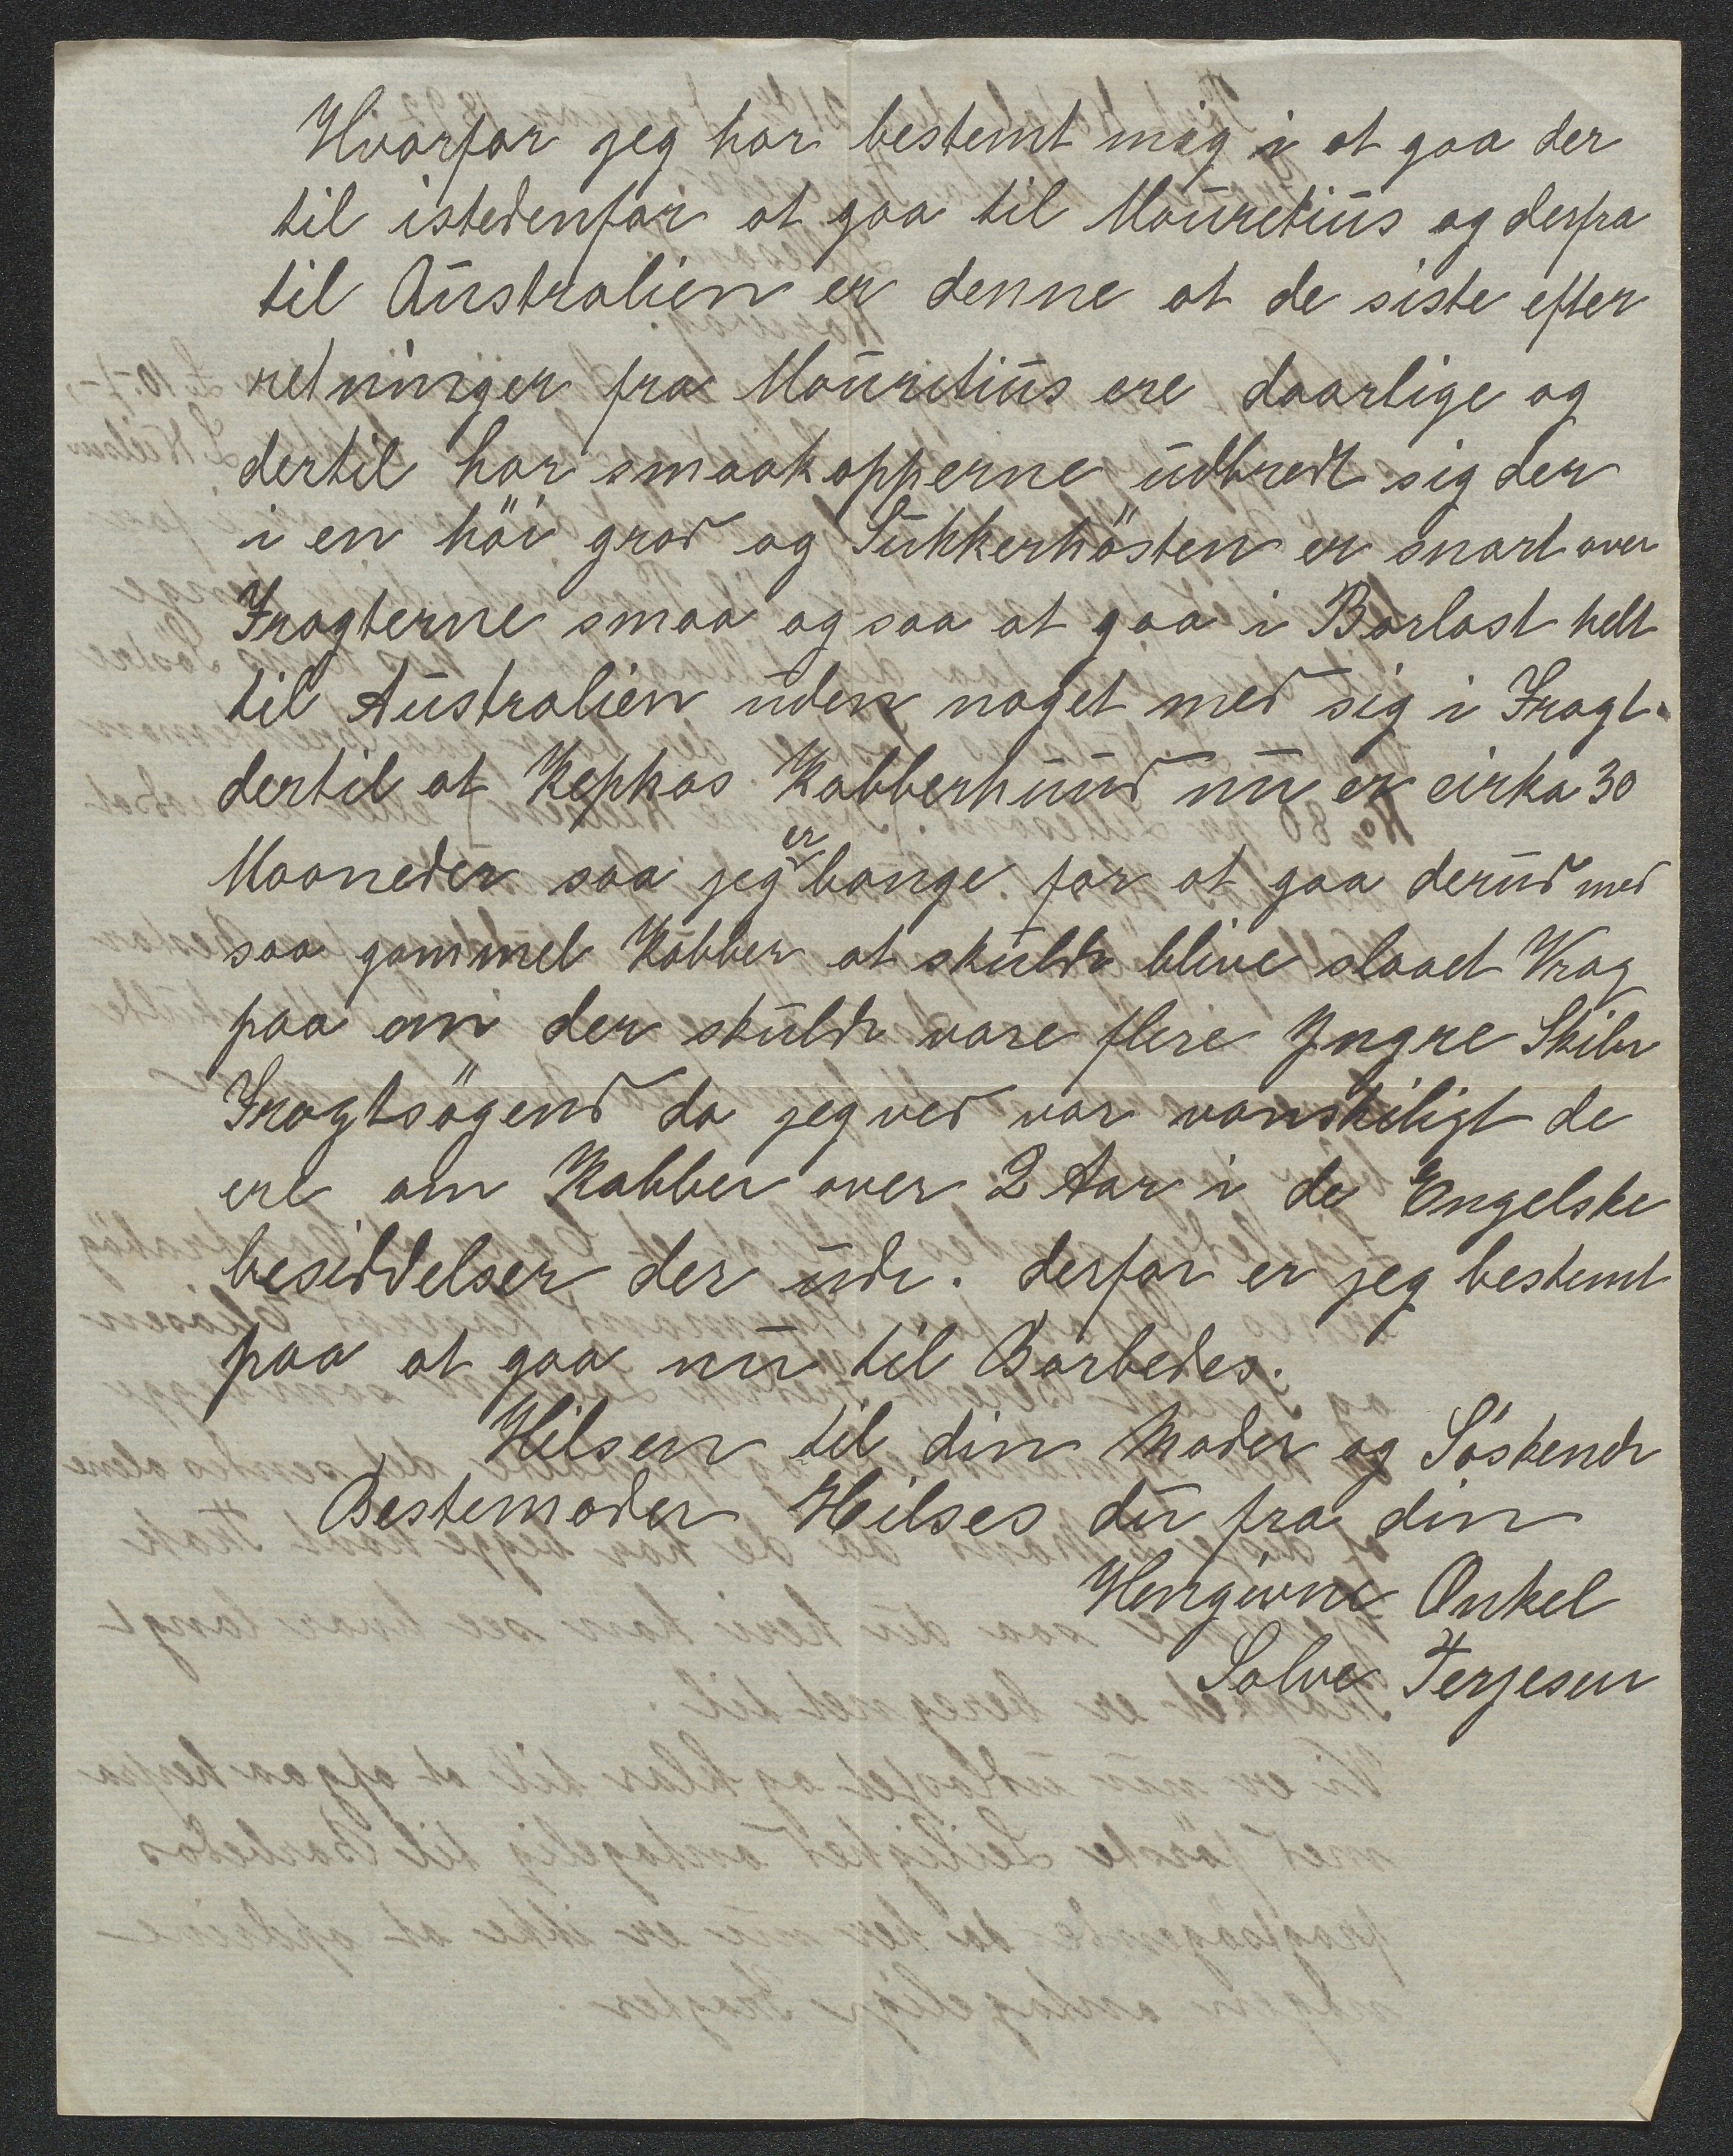 Hvorfor jeg har bestemt mig i at gaa der
til istedenfor at gaa til Mouretius og derfra
til Australien er denne at de siste efter
retninger fra Mouretius ere daarlige og
dertil har smaakopperne udbredt sig der
i en höi grad og Sukkerhösten er snart over
Fragterne smaa og saa at gaa i Barlast helt
til Australien uden noget med sig i Fragt.
dertil at Kephas Kobberhuud nu er cirka 30
Maaneder saa jeg er bange for at gaa derud med
saa gammel Kobber at skulde blive slaaet Vrag
paa om der skulde vare flere Yngre Skibe
Fragtsögend da jeg ved vor vanskiligt de
ere om Kobber over 2 Aar i de Engelske
besiddelser der ude. derfor er jeg bestemt
paa at gaa nu til Barbedes.
Hilsen til din Moder og Söskende
Bestemoder Hilses du fra din
Hengivne Onkel
Salve Terjesen